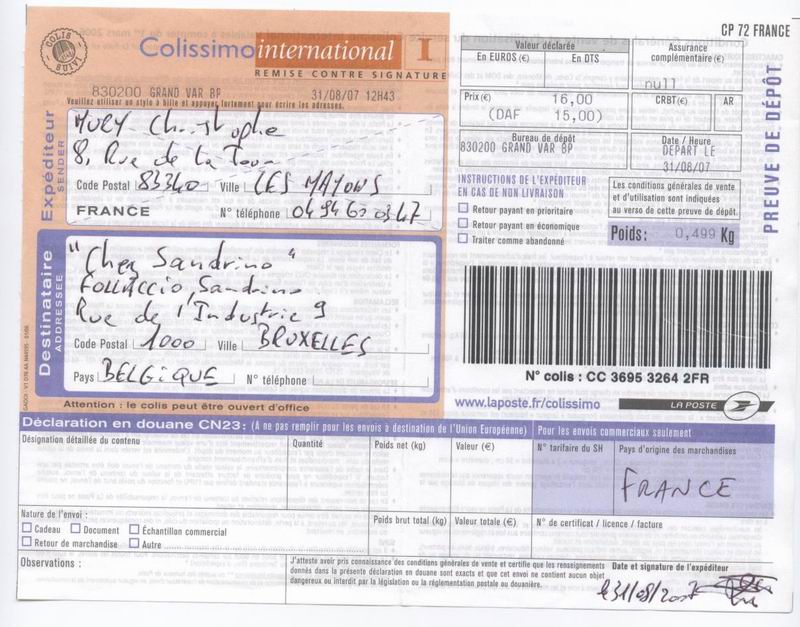 CP 72 FRANCE
COLIS SUIVI
Colissimo international I
REMISE CONTRE SIGNATURE
830200 GRAND VAR BP 31/08/07 12H43
Veuillez utiliser un stylo à bille et appuyer fortement pour écrire les adresses.
Expéditeur
SENDER
MURY Christophe
8, Rue de la Tour
Code Postal 83340 Ville LES MAYONS
FRANCE N° téléphone 04 94 60 03 47
Destinataire
ADDRESSEE
"Chez Sandrino"
Sandrino
Rue de l'Industrie 9
Code Postal 1000 Ville BRUXELLES
Pays BELGIQUE N° téléphone
Attention : le colis peut être ouvert d'office
Valeur déclarée
En EUROS (€) En DTS
Assurance complémentaire (€)
null
Prix (€) 16,00
(DAF 15,00)
CRBT (€) AR
Bureau de dépôt
830200 GRAND VAR BP
Date / Heure
DEPART LE
31/08/07
PREUVE DE DÉPÔT
INSTRUCTIONS DE L'EXPÉDITEUR
EN CAS DE NON LIVRAISON
Retour payant en prioritaire
Retour payant en économique
Traiter comme abandonné
Les conditions générales de vente
et d'utilisation sont indiquées
au verso de cette preuve de dépôt.
Poids : 0,499 Kg
N° colis : CC 3695 3264 2FR
www.laposte.fr/colissimo LA POSTE
Déclaration en douane CN23 : (A ne pas remplir pour les envois à destination de l'Union Européenne) Pour les envois commerciaux seulement
Désignation détaillée du contenu Quantité Poids net (kg) Valeur (€) N° tarifaire du SH Pays d'origine des marchandises
FRANCE
Nature de l'envoi : Poids brut total (kg) Valeur totale (€) N° de certificat / licence / facture
Cadeau Document Échantillon commercial
Retour de marchandise Autre
Observations :
J'atteste avoir pris connaissance des conditions générales de vente et certifie que les renseignements
donnés dans la présente déclaration en douane sont exacts et que cet envoi ne contient aucun objet
dangereux ou interdit par la législation ou la réglementation postale ou douanière.
Date et signature de l'expéditeur
le 31/08/2007